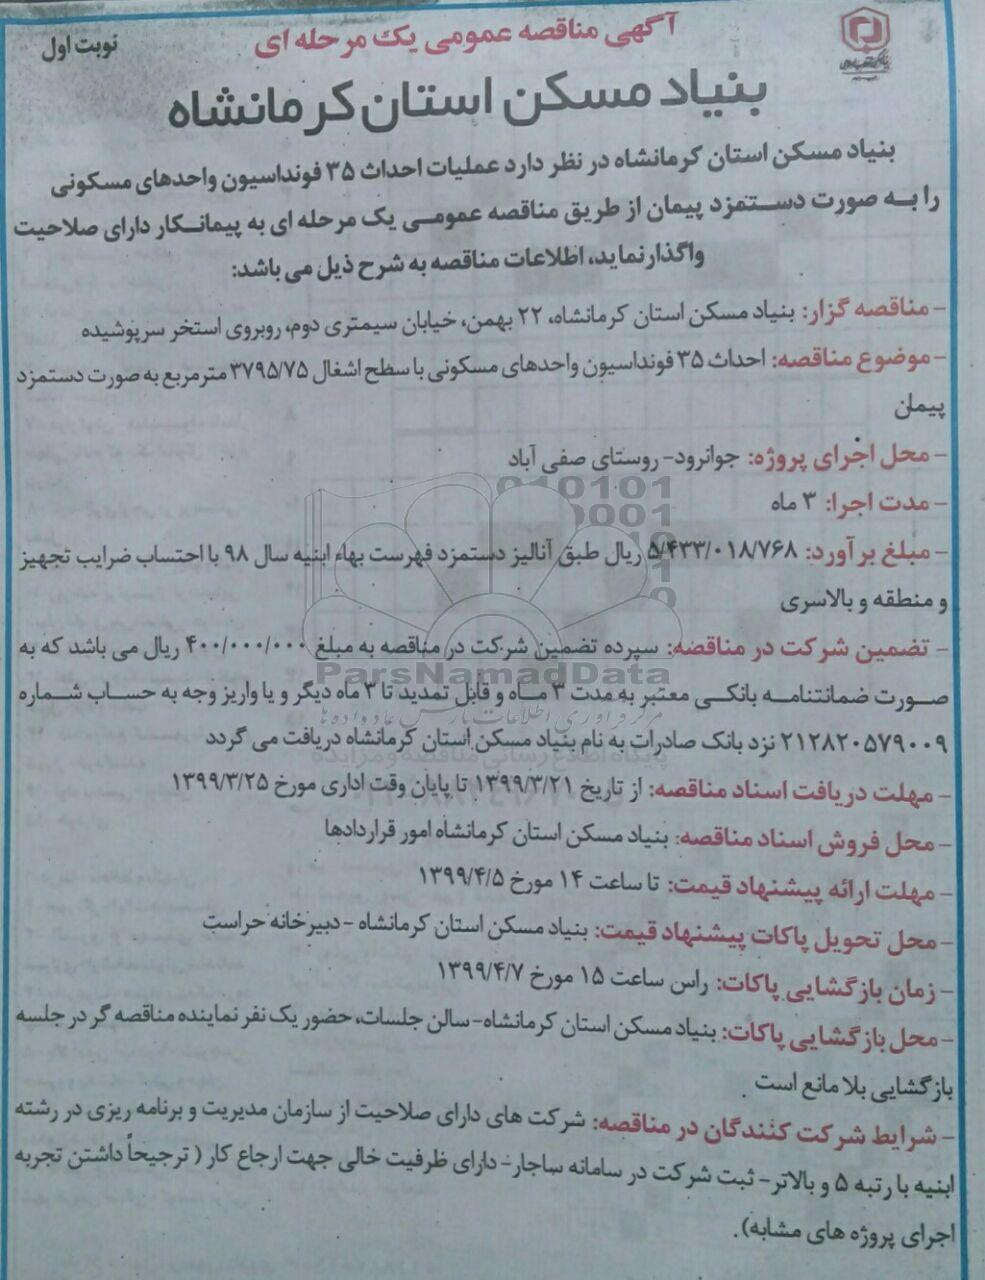 آگهی مناقصه عمومی یک مرحله ای
نوبت اول
بنیاد مسکن استان کرمانشاه
بنیاد مسکن استان کرمانشاه در نظر دارد عملیات احداث ۳۵ فونداسیون واحدهای مسکونی
را به صورت دستمزد پیمان از طریق مناقصه عمومی یک مرحله ای به پیمانکار دارای صلاحیت
واگذار نماید، اطلاعات مناقصه به شرح ذیل می باشد:
- مناقصه گزار: بنیاد مسکن استان کرمانشاه، ۲۲ بهمن، خیابان سیمتری دوم، روبروی استخر سرپوشیده
- موضوع مناقصه: احداث ۳۵ فونداسیون واحدهای مسکونی با سطح اشغال ۳۷۹۵/۷۵ مترمربع به صورت دستمزد
پیمان
- محل اجرای پروژه: جوانرود- روستای صفی آباد
- مدت اجرا: ۳ ماه
- مبلغ برآورد: ۵/۴۳۳/۰۱۸/۷۶۸ ریال طبق آنالیز دستمزد فهرست بهاء ابنیه سال ۹۸ با احتساب ضرایب تجهیز
و منطقه و بالاسری
- تضمین شرکت در مناقصه: سپرده تضمین شرکت در مناقصه به مبلغ ۴۰۰/۰۰۰/۰۰۰ ریال می باشد که به
صورت ضمانتنامه بانکی معتبر به مدت ۳ ماه و قابل تمدید تا ۳ ماه دیگر و یا واریز وجه به حساب شماره
۲۱۲۸۲۰۵۷۹۰۰۹ نزد بانک صادرات به نام بنیاد مسکن استان کرمانشاه دریافت می گردد
- مهلت دریافت اسناد مناقصه: از تاریخ ۱۳۹۹/۳/۲۱ تا پایان وقت اداری مورخ ۱۳۹۹/۳/۲۵
- محل فروش اسناد مناقصه: بنیاد مسکن استان کرمانشاه امور قراردادها
- مهلت ارائه پیشنهاد قیمت: تا ساعت ۱۴ مورخ ۱۳۹۹/۴/۵
- محل تحویل پاکات پیشنهاد قیمت: بنیاد مسکن استان کرمانشاه - دبیرخانه حراست
- زمان بازگشایی پاکات: راس ساعت ۱۵ مورخ ۱۳۹۹/۴/۷
- محل بازگشایی پاکات: بنیاد مسکن استان کرمانشاه- سالن جلسات، حضور یک نفر نماینده مناقصه گر در جلسه
بازگشایی بلا مانع است .
- شرایط شرکت کنندگان در مناقصه: شرکت های دارای صلاحیت از سازمان مدیریت و برنامه ریزی در رشته
ابنیه با رتبه ۵ و بالاتر- ثبت شرکت در سامانه ساجار- دارای ظرفیت خالی جهت ارجاع کار ( ترجیحاً داشتن تجربه
اجرای پروژه های مشابه).
ParsNamadData
مرکز فرآوری اطلاعات پارس نماد داده ها
پایگاه اطلاع رسانی مناقصه و مزایده